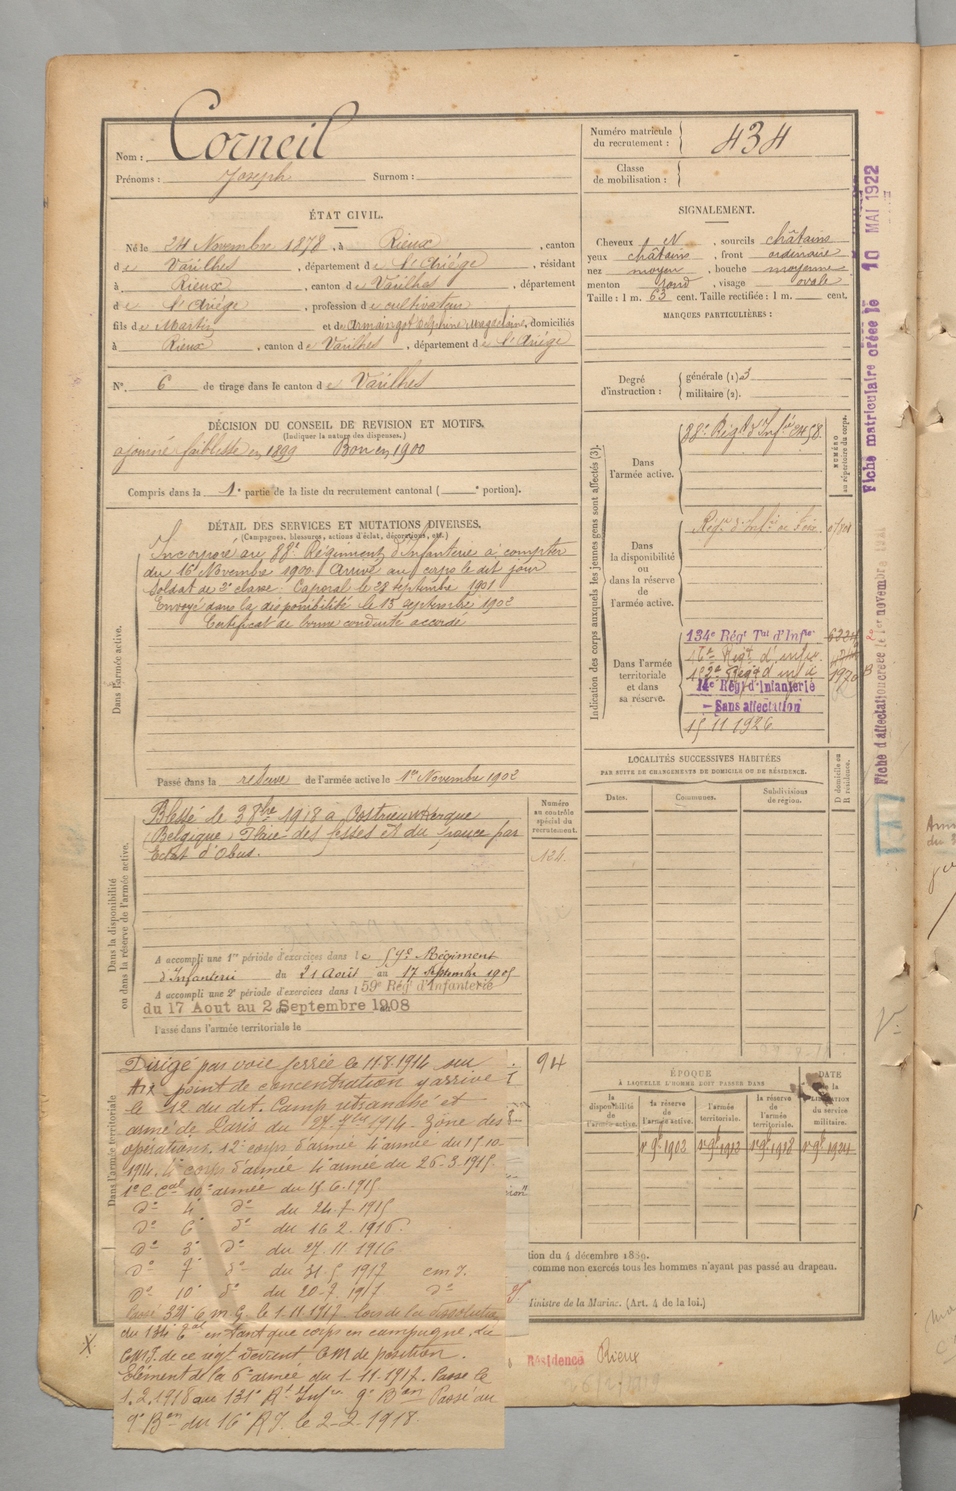 Nom : Corneil
Prénoms : Joseph Surnom :
ÉTAT CIVIL.
Né le 24 Novembre 1878, à Rieux, canton
de Varilhes, département de l'Ariége, résidant
à Rieux, canton de Varilhes, département
de l'Ariége, profession de cultivateur
fils de Martin et de Armaing Delphine Magdelaine, domiciliés
à Rieux, canton de Varilhes, département de l'Ariége
N° 6 de tirage dans le canton de Varilhes
DÉCISION DU CONSEIL DE REVISION ET MOTIFS.
(Indiquer la nature des dispenses.)
ajourné faiblesse en 1899 Bon en 1900
Compris dans la 1e partie de la liste du recrutement cantonal ( e portion).
DÉTAIL DES SERVICES ET MUTATIONS DIVERSES.
(Campagnes, blessures, actions d'éclat, décorations, etc.)
Dans l'armée active.
Incorporé au 88e Régiment d'Infanterie à compter
du 16 Novembre 1900. Arrivé au corps le dit jour
Soldat de 2e classe. Caporal le 28 septembre 1901
Envoyé dans la disponibilité le 13 septembre 1902
Certificat de bonne conduite accordé
Passé dans la réserve de l'armée active le 1er Novembre 1902
Dans la disponibilité
ou dans la réserve de l'armée active.
Blessé le 3 8bre 1918 à
(Belgique) Plaie des fesses et du par
Eclat d'Obus.
A accompli une 1re période d'exercices dans le 59e Régiment
d'Infanterie du 21 Août au 17 Septembre 1905
A accompli une 2e période d'exercices dans l 59e Rég' d'Infanterie
du 17 Aout au 2 Septembre 1908
Passé dans l'armée territoriale le
Dans l'armée territoriale
Dirigé par voie ferrée le 11.8.1914 sur
Aix point de concentration y arrive
le 12 du dt. Camp retranché et
armée de Paris du 1914. Zone des
opérations. 12e corps d'armée 4e armée du 15.10.
1914. 4e corps d'armée 4e armée du 26.3.1915
1e C. Cal 10e armée du 15.6.1915
do 4e do du 24.7.1915
do 6e do du 16.2.1916.
do 3e do du 27.11.1916
do 7e do du 31.5.1917
do 10e do du 20.7.1917 do
le 1.11.1917 lors de la dissolution
du 134e en tant que corps en campagne, la
de ce régt devient C.M. de position.
Elément de la 6e armée du 1.11.1917. Passé le
1.2.1918 au 131e Rt Infie 9e Bon Passé au
9e Bon du 16e R.I. le 2-2-1918.
Numéro
au contrôle
spécial du
recrutement.
124.
94
Numéro matricule
du recrutement : 434
Classe
de mobilisation :
SIGNALEMENT.
Cheveux N, sourcils châtains
yeux châtains, front ordinaire
nez moyen, bouche moyenne
menton rond, visage ovale
Taille : 1 m. 63 cent. Taille rectifiée : 1 m. cent.
MARQUES PARTICULIÈRES :
Degré
d'instruction :
générale (1) 3
militaire (2).
Indication des corps auxquels les jeunes gens sont affectés (3).
NUMÉRO
au répertoire du corps.
Dans
l'armée active.
88e Régt d'Infie 2458.
Dans
la disponibilité
ou dans la réserve
de
l'armée active.
Régt d'Infie de Foix
Dans l'armée
territoriale
et dans
sa réserve.
134e Régt Tal d'Infie
16e Régt d'infie
Régt d'infie 1920
14e Régt d'Infanterie
- Sans affectation
15 11 1926
LOCALITÉS SUCCESSIVES HABITÉES
PAR SUITE DE CHANGEMENTS DE DOMICILE OU DE RÉSIDENCE.
Dates.
Communes.
Subdivisions
de région.
D domicile ou
R résidence.
ÉPOQUE
À LAQUELLE L'HOMME DOIT PASSER DANS
la
disponibilité
de
l'armée active.
la réserve
de
l'armée active.
l'armée
territoriale.
la réserve
de
l'armée
territoriale.
DATE
de la
LIBÉRATION
du service
militaire.
1er 9bre 1902
1er 9bre 1912
1er 9bre 1918
1er 9bre 1924
tion du 4 décembre 1889.
comme non exercés tous les hommes n'ayant pas passé au drapeau.
Ministre de la Marine. (Art. 4 de la loi.)
Résidence Rieux
Fiche matriculaire créée le 10 MAI 1922
Fiche d'affectation créée le 1er novembre